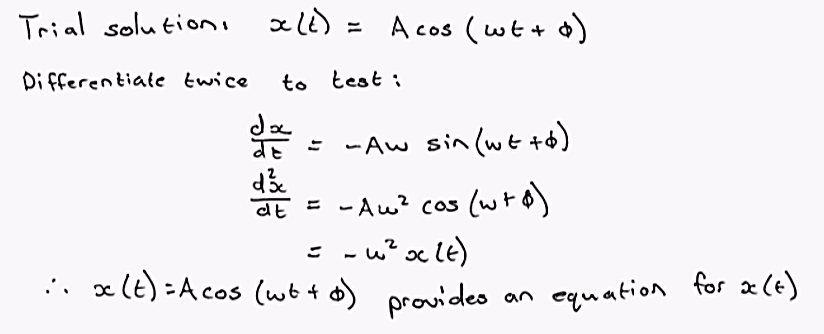 Trial solution: x(t) = A cos (ωt + φ)
Differentiate twice to test:
dx/dt = -Aω sin(ωt + φ)
d²x/dt = -Aω² cos (ωt φ)
= -ω² x(t)
∴ x(t) = A cos (ωt + φ) provides an equation for x(t)